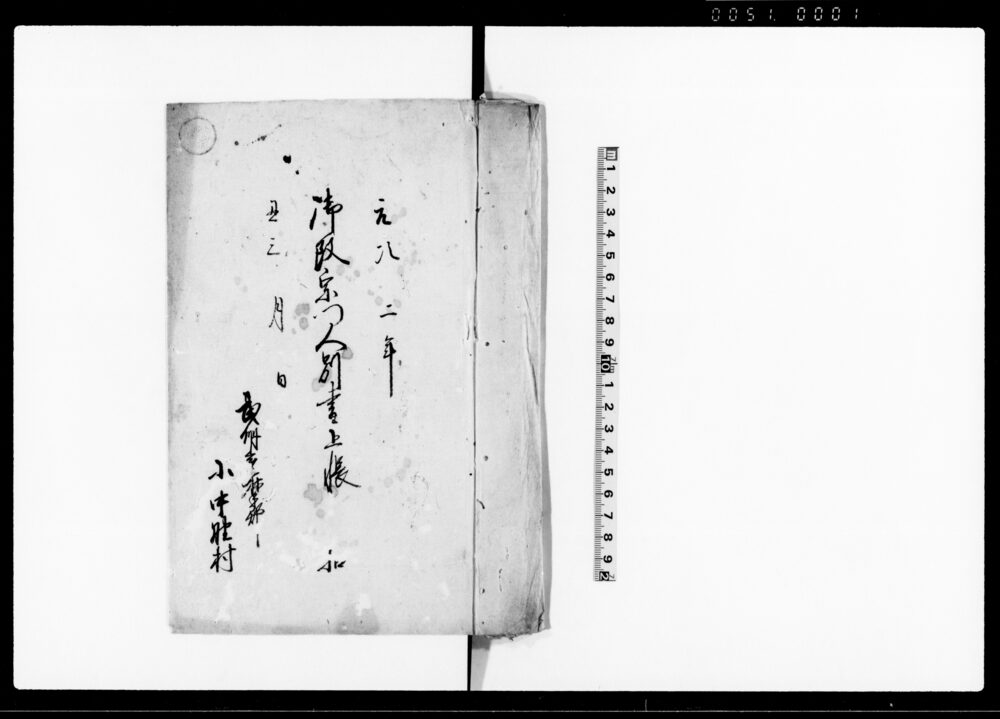 0051. 0001
元治二年
御改宗門人別書上帳
扣
丑三月 日
武州多摩郡
小中野村
1 2 3 4 5 6 7 8 9 10 1 2 3 4 5 6 7 8 9 2